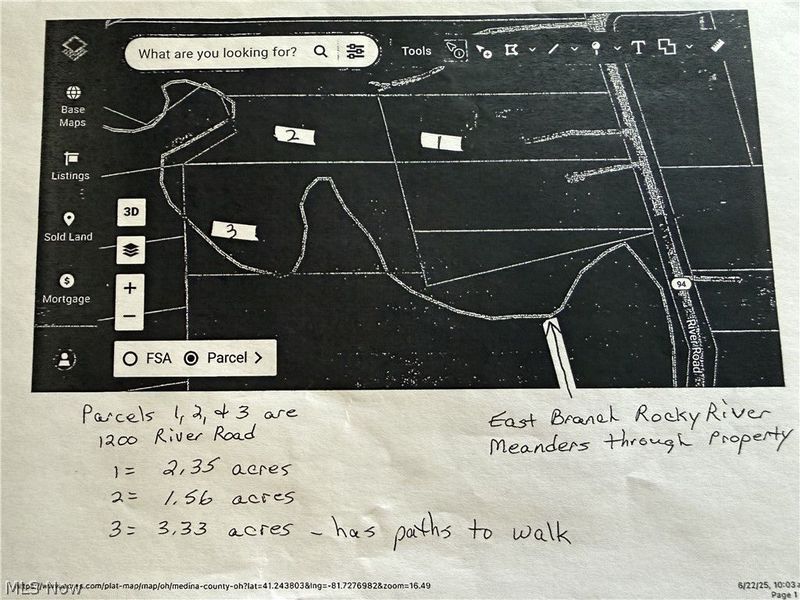 What are you looking for?
Tools
T
Base
Maps
Listings
Sold Land
Mortgage
3D
+
−
FSA Parcel >
2
1
3
94
River Road
Parcels 1, 2, & 3 are
1200 River Road
1= 2.35 acres
2= 1.56 acres
3= 3.33 acres - has paths to walk
East Branch Rocky River
Meanders through Property
MLS Now
.com/plat-map/map/oh/medina-county-oh?lat=41.243803&lng=-81.7276982&zoom=16.49
6/22/25, 10:03
Page 1